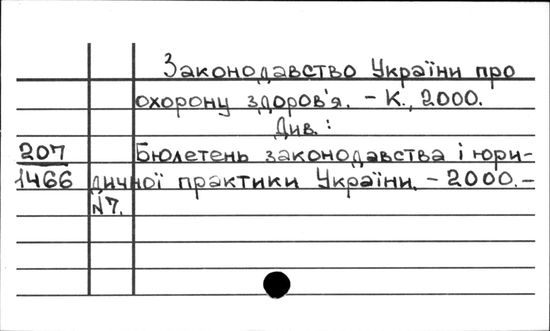 Законодавство України про
охорону здоров'я. – К., 2000.
Див.:
207 Бюлетень законодавства і юри-
1466 дичної практики України. – 2000. –
N7.